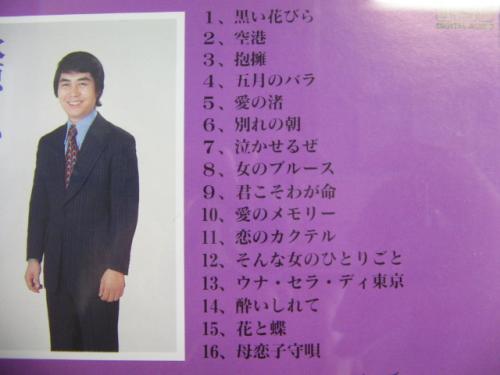 1、黒い花びら
2、空港
3、抱擁
4、五月のバラ
5、愛の渚
6、別れの朝
7、泣かせるぜ
8、女のブルース
9、君こそわが命
10、愛のメモリー
11、恋のカクテル
12、そんな女のひとりごと
13、ウナ・セラ・ディ東京
14、酔いしれて
15、花と蝶
16、母恋子守唄